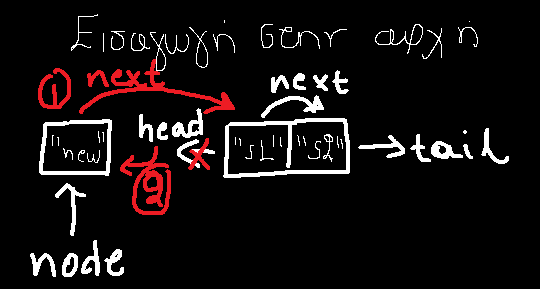 Εισαγωγή στην αρχή
① next
next
head
"new" "s1" "s2" tail
2
node